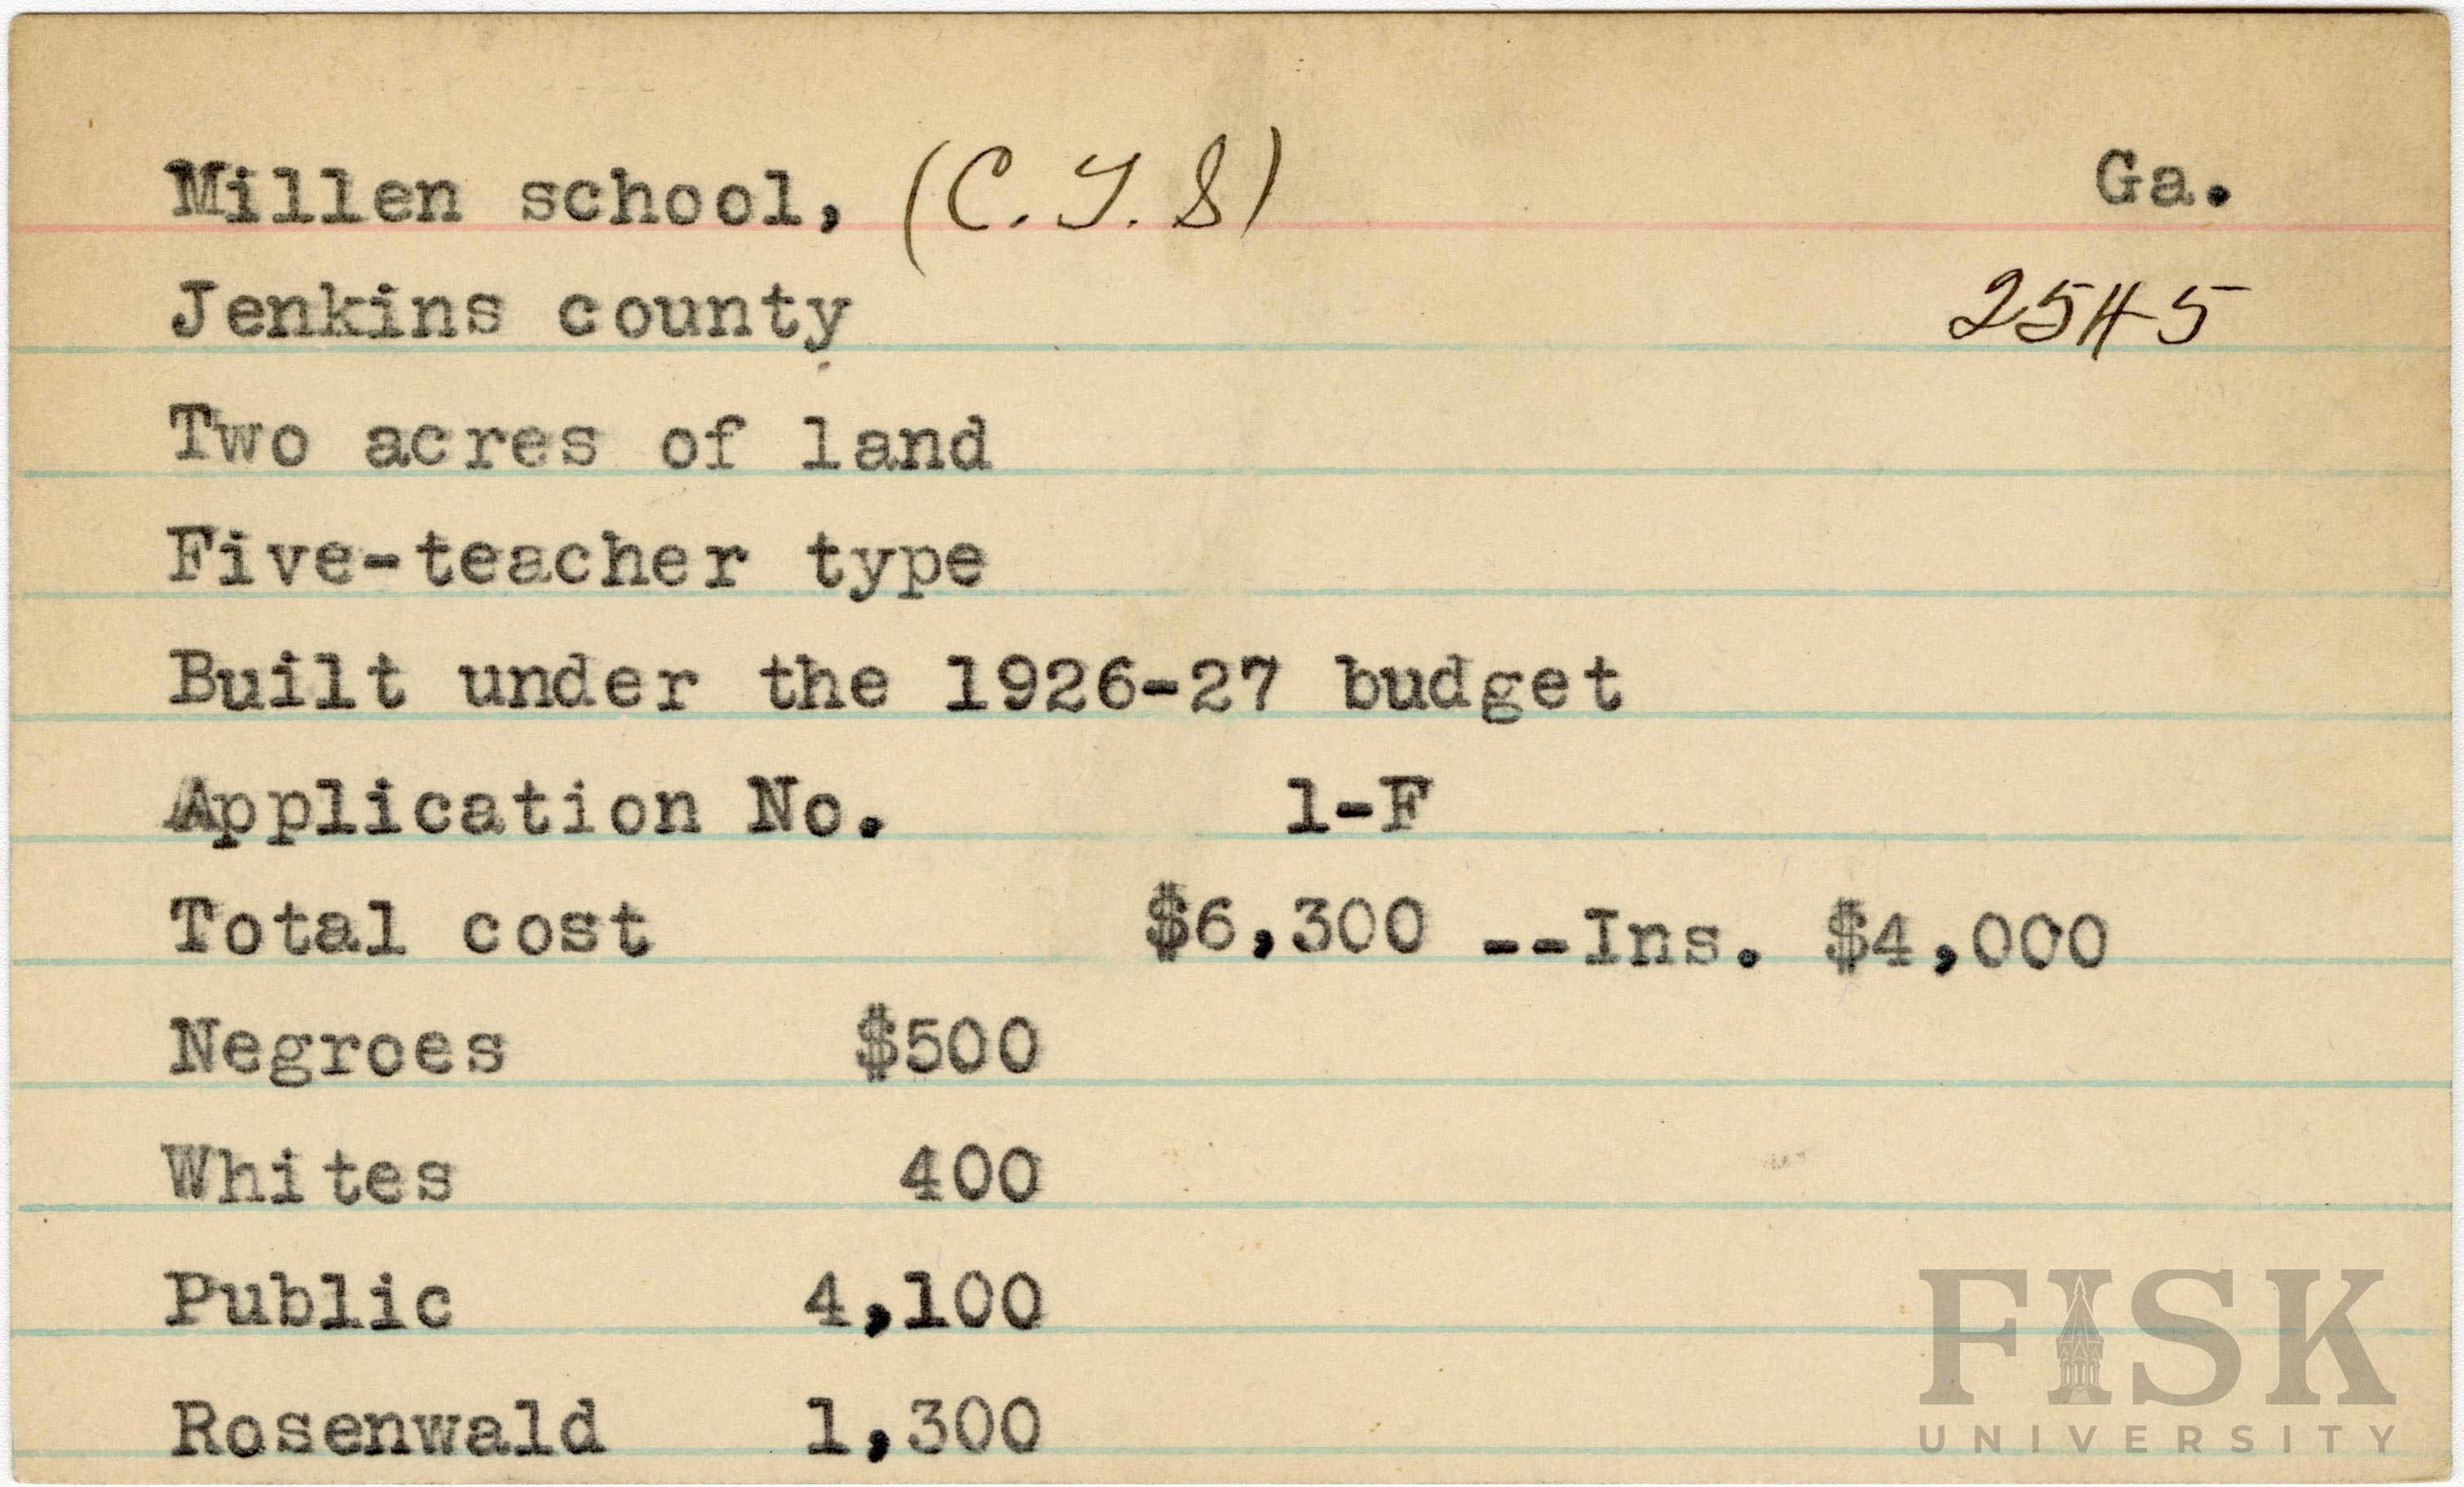 Millen school, (C.T.S) Ga.
Jenkins county 2545
Two acres of land
Five-teacher type
Built under the 1926-27 budget
Application No. 1-F
Total cost $6,300 --Ins. $4,000
Negroes $500
Whites 400
Public 4,100
Rosenwald 1,300
FISK
UNIVERSITY